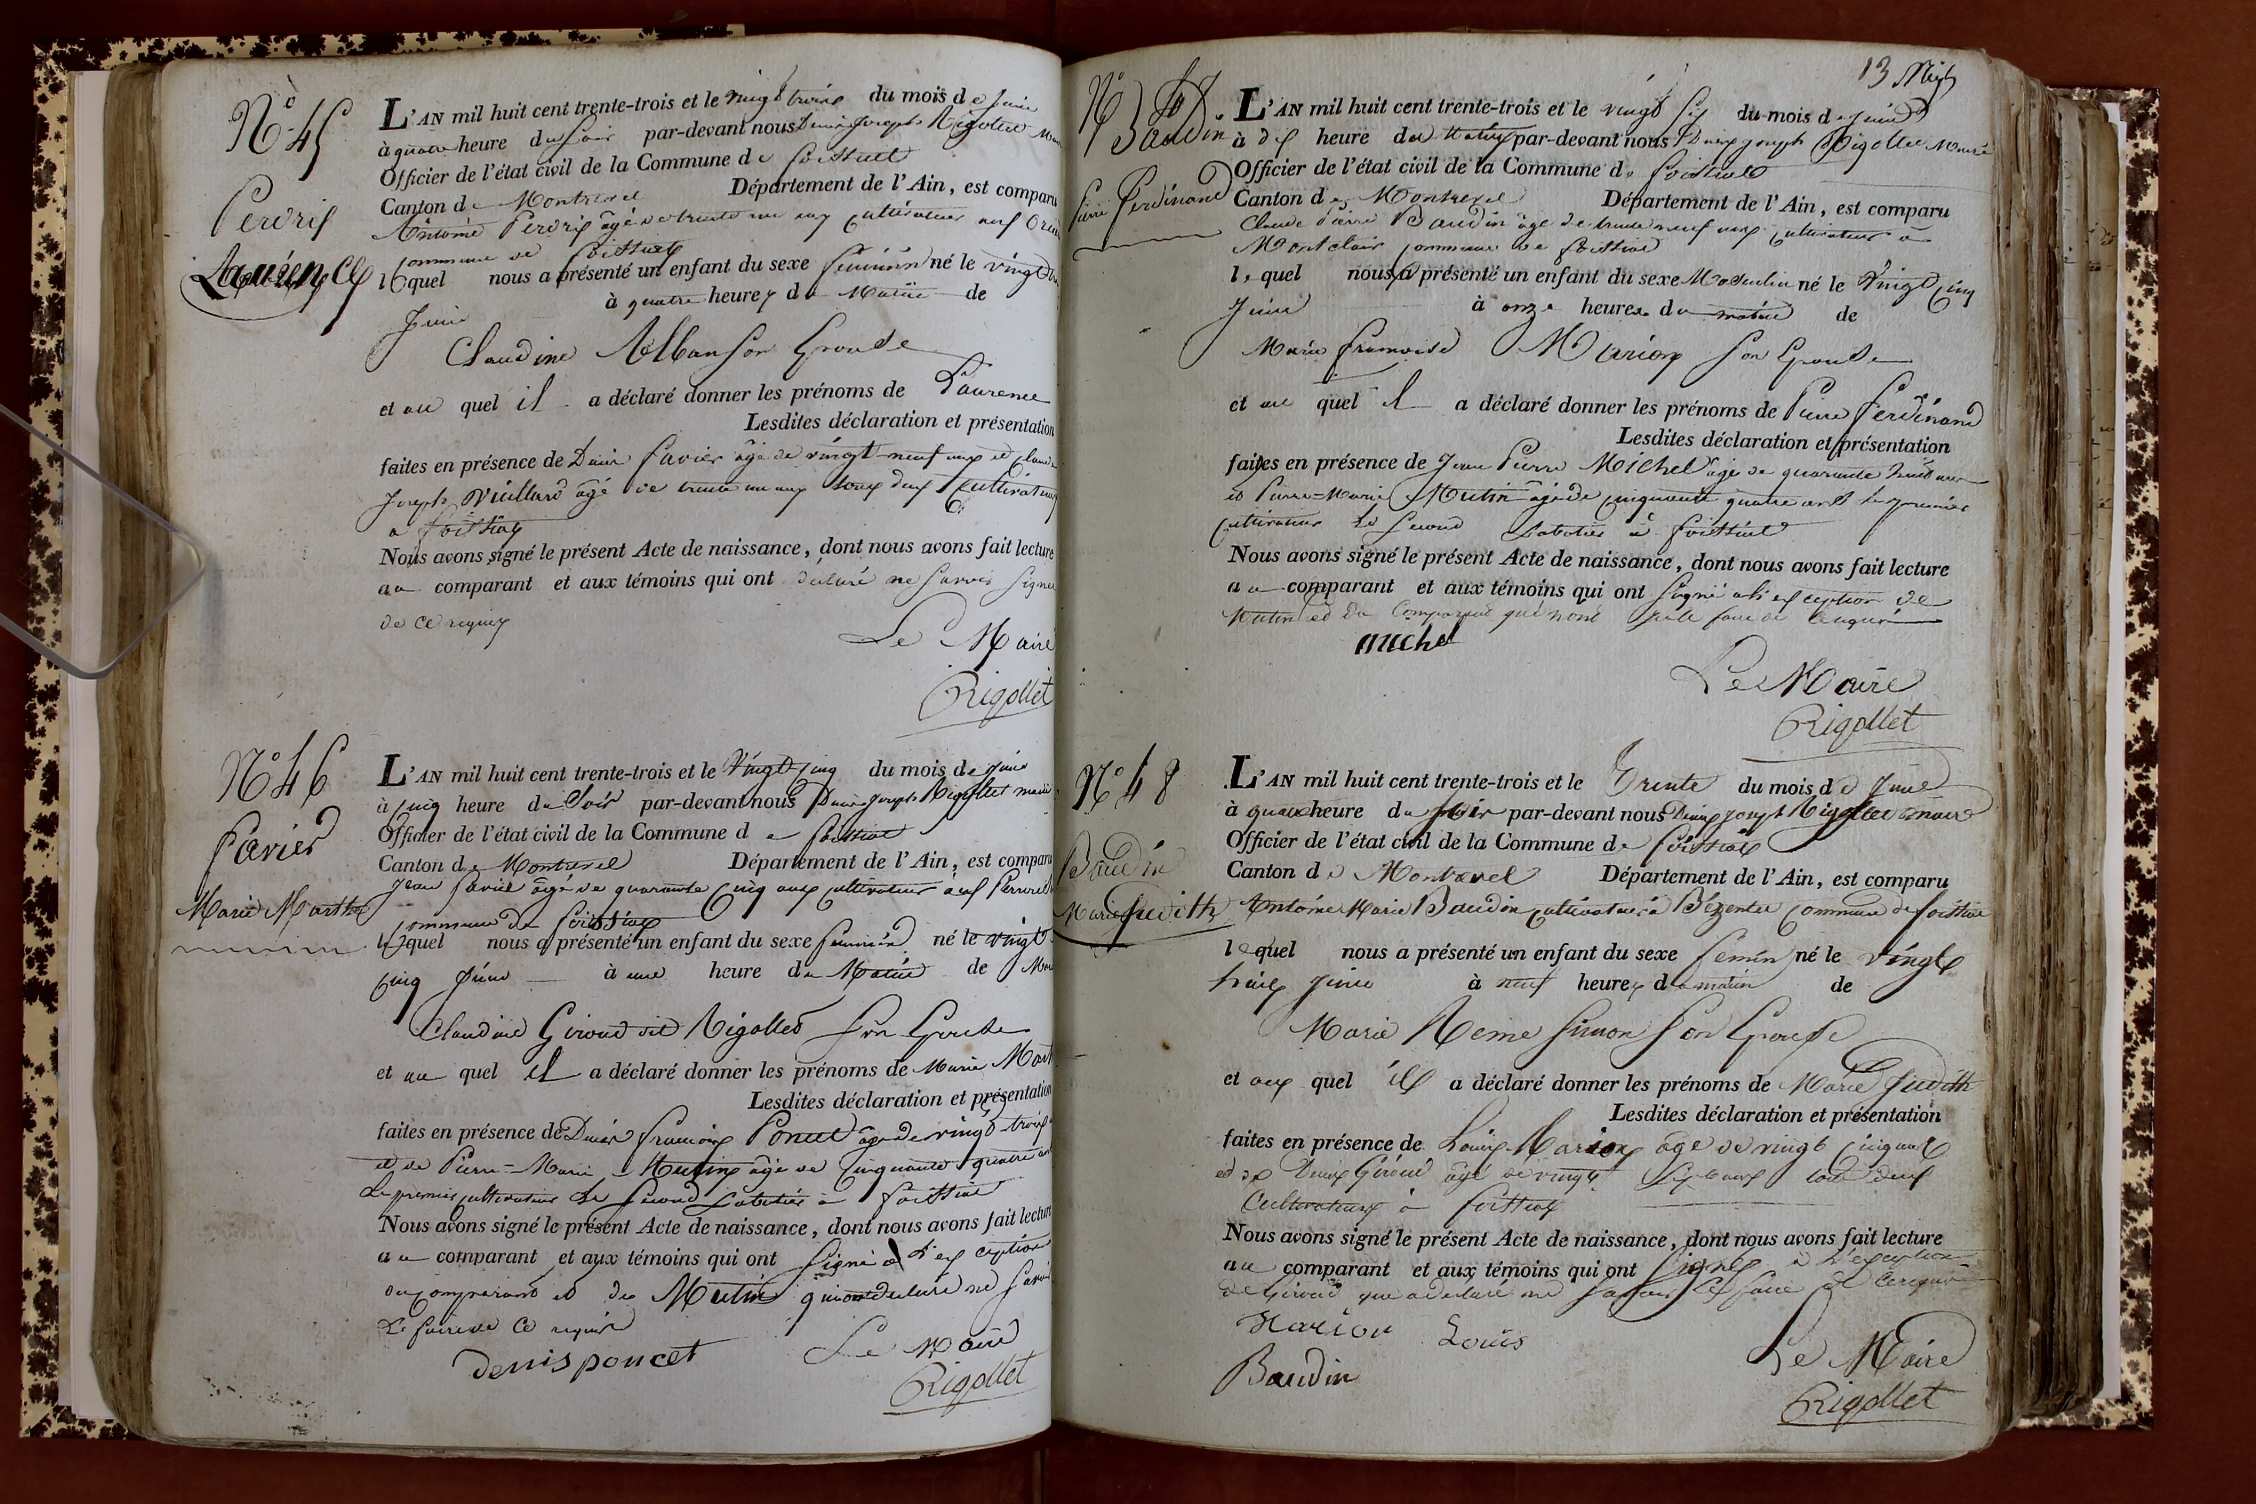 N° 45
Perdrix
Laurence
L'AN mil huit cent trente-trois et le vingt trois du mois de Juin
à quatre heure du soir par-devant nous Denis Joseph Rigollet Maire
Officier de l'état civil de la Commune de Foissiat
Canton de Montrevel Département de l'Ain, est comparu
Antoine Perdrix âgé de trente un ans cultivateur aux
commune de Foissiat
lequel nous a présenté un enfant du sexe féminin né le vingt
Juin à quatre heures du Matin de
Claudine Alban son Epouse
et au quel il a déclaré donner les prénoms de Laurence
Lesdites déclaration et présentation
faites en présence de Denis Favier âgé de vingt neuf ans et Claude
Joseph Vuillard âgé de trente un ans tous deux cultivateurs
à Foissiat
Nous avons signé le présent Acte de naissance, dont nous avons fait lecture
au comparant et aux témoins qui ont déclaré ne savoir signer
de ce requis
Le Maire
Rigollet
N° 46
Favier
Marie Marthe
L'AN mil huit cent trente-trois et le Vingt cinq du mois de Juin
à cinq heure du Soir par-devant nous Denis Joseph Rigollet maire
Officier de l'état civil de la Commune de Foissiat
Canton de Montrevel Département de l'Ain, est comparu
Jean Favier âgé de quarante cinq ans cultivateur aux
commune de Foissiat
lequel nous a présenté un enfant du sexe féminin né le vingt
cinq Juin à une heure du Matin de
Claudine Giroud dit Rigollet son Epouse
et au quel il a déclaré donner les prénoms de Marie Mart
Lesdites déclaration et présentation
faites en présence de Denis François Poncet âgé de vingt trois
et de Pierre-Marie Mutin âgé de cinquante quatre ans
Le premier cultivateur Le second sabotier à Foissiat
Nous avons signé le présent Acte de naissance, dont nous avons fait lecture
au comparant et aux témoins qui ont signé à l'exception
du comparant et de Mutin qui ont déclaré ne savoir
Le faire de ce requis
denis poncet
Le Maire
Rigollet
13
N° 47
Baudin
Pierre Ferdinand
L'AN mil huit cent trente-trois et le vingt six du mois de Juin
à dix heure du Matin par-devant nous Denis Joseph Rigollet Maire
Officier de l'état civil de la Commune de Foissiat
Canton de Montrevel Département de l'Ain, est comparu
Claude Pierre Baudin âgé de trente neuf ans cultivateur à
Montclair commune de Foissiat
lequel nous a présenté un enfant du sexe Masculin né le Vingt cinq
Juin à onze heures du matin de
Marie Françoise Marion son Epouse
et au quel il a déclaré donner les prénoms de Pierre Ferdinand
Lesdites déclaration et présentation
faites en présence de Jean Pierre Michel âgé de quarante huit ans
et Pierre-Marie Mutin âgé de cinquante quatre ans le premier
cultivateur le second sabotier à Foissiat
Nous avons signé le présent Acte de naissance, dont nous avons fait lecture
au comparant et aux témoins qui ont signé à l'exception de
Mutin et du Comparant qui n'ont faire requis
michel
Le Maire
Rigollet
N° 48
Baudin
Marie Judith
L'AN mil huit cent trente-trois et le Trente du mois de Juin
à quatre heure du soir par-devant nous Denis Joseph Rigollet maire
Officier de l'état civil de la Commune de Foissiat
Canton de Montrevel Département de l'Ain, est comparu
Antoine Marie Baudin cultivateur à Bézentet commune de Foissiat
lequel nous a présenté un enfant du sexe Fémin né le vingt
huit Juin à neuf heures du matin de
Marie Reine Simon son Epouse
et au quel il a déclaré donner les prénoms de Marie Judith
Lesdites déclaration et présentation
faites en présence de Louis Marion âgé de vingt cinq ans
et de Denis Giroud âgé de vingt ans tous deux
Cultivateurs à Foissiat
Nous avons signé le présent Acte de naissance, dont nous avons fait lecture
au comparant et aux témoins qui ont signé à l'exception
de Giroud qui a déclaré ne savoir le faire de ce requis
Marion Louis
Baudin
Le Maire
Rigollet